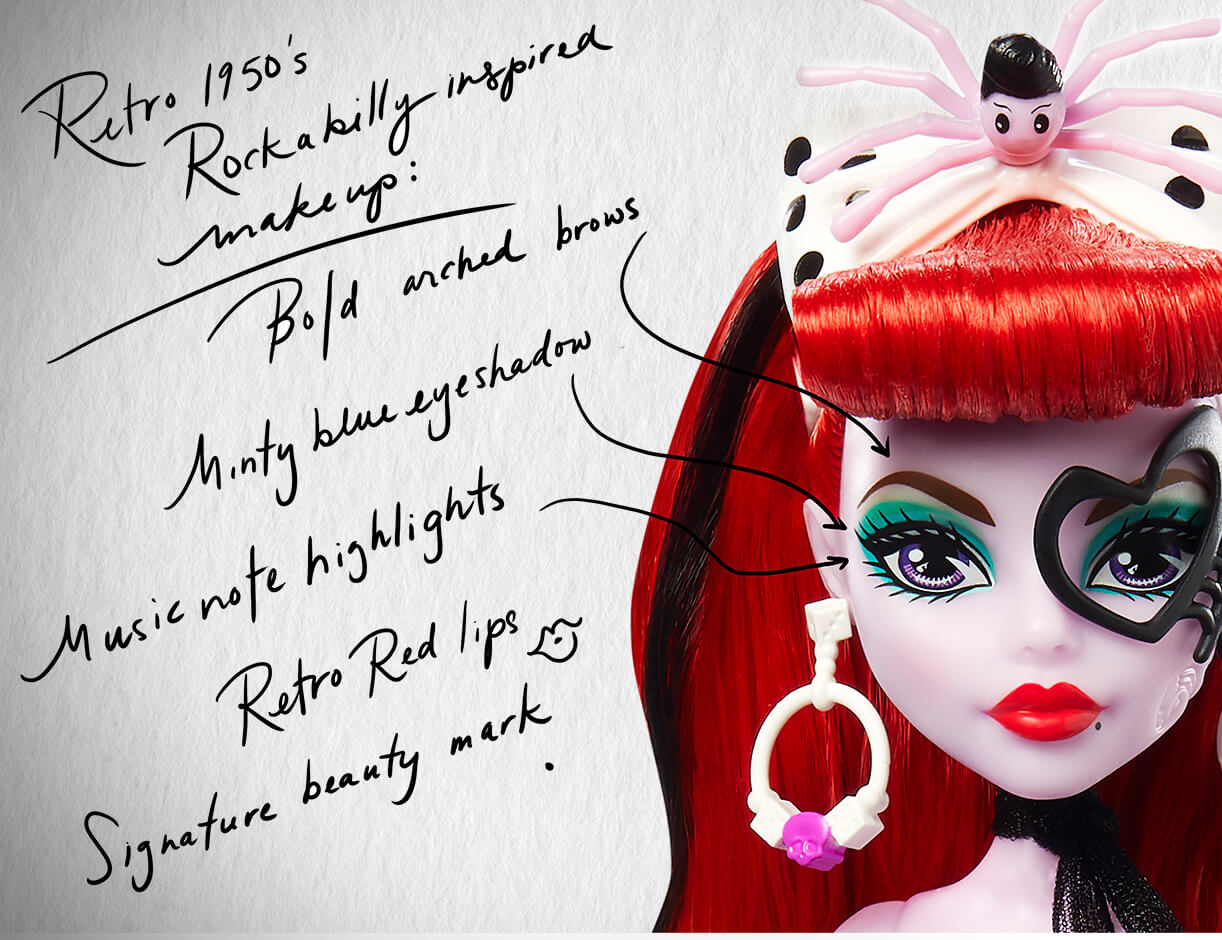 Retro 1950's
Rockabilly inspired
makeup:
Bold arched brows
Minty blue eyeshadow
Music note highlights
Retro Red lips
Signature beauty mark